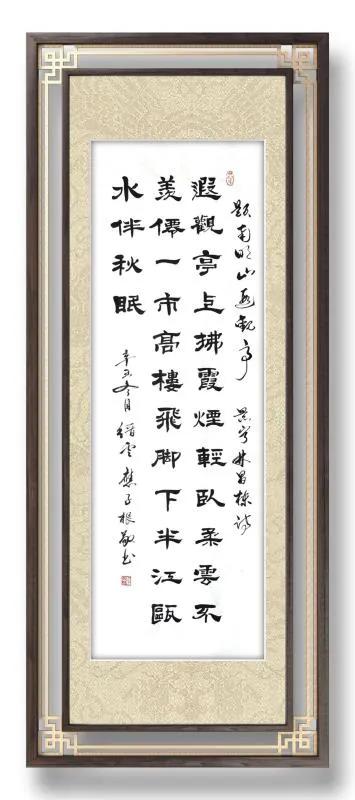 題南明山遐觀亭 景寧林昌棟詩
遐觀亭上拂霞煙輕臥柔雲不
羨僊一市高樓飛脚下半江甌
水伴秋眠
辛丑冬月縉雲應子根敬書